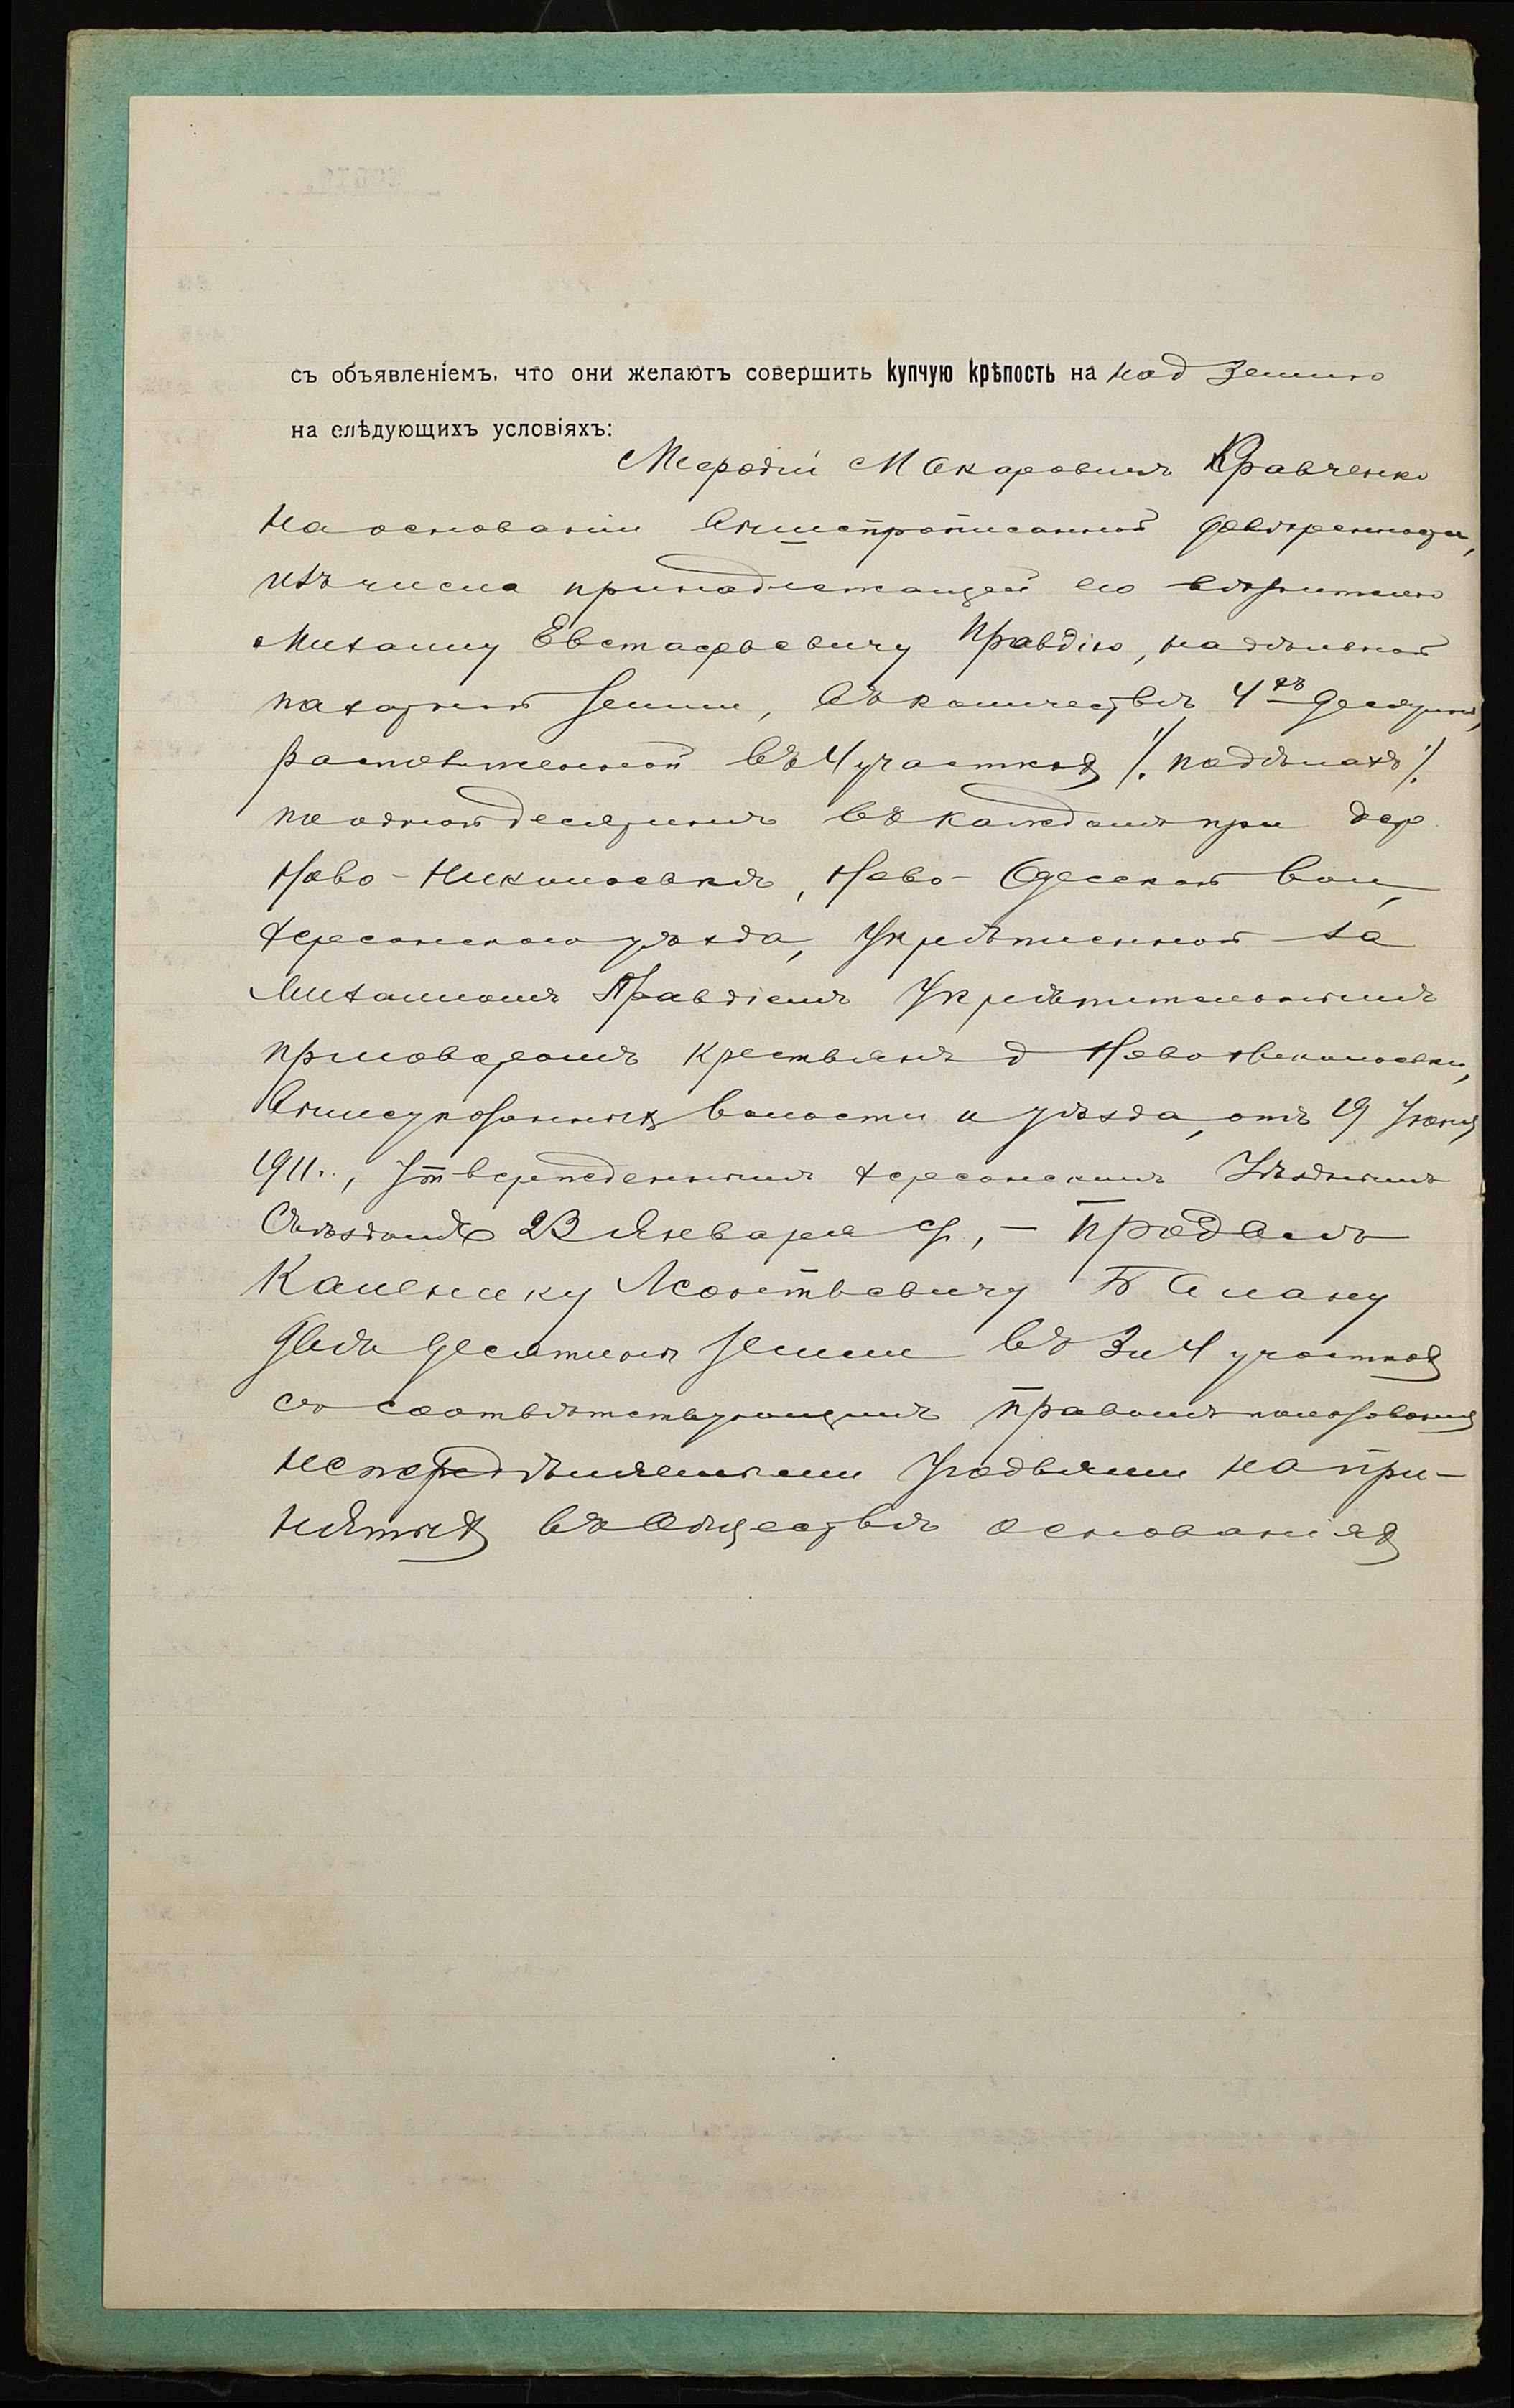 съ объявленіемъ, что они желаютъ совершить купчую крѣпость на над землю
на слѣдующихъ условіяхъ:
Мефодій Макаровичъ Кравченко
на основаніи вышепрописанной довѣренности,
изъ числа принадлежащей его вѣрителю
Михаилу Евстафьевичу Правдію, надѣльной
пахатной земли, въ количествѣ 4хъ десятинъ,
расположенной въ 4 участкахъ /. надѣлахъ /.
по одной десятинѣ въ каждомъ при дер
Ново-Николаевкѣ, Ново-Одесской вол,
Херсонскаго уѣзда, укрѣпленной за
Михаиломъ Правдіемъ укрѣпительнымъ
приговоромъ крестьянъ д Ново Николаевки,
вышеуказанныхъ волости и уѣзда, отъ 19 Іюня
1911г., утвержденнымъ Херсонскимъ Уѣзднымъ
Съѣздомъ 23 Января с/г, – продалъ
Каленику Леонтьевичу Баману
двѣ десятины земли въ 3 и 4 участкахъ
съ соотвѣтствующимъ правомъ пользованія
непередѣляемыми угодьями на при-
нятыхъ въ обществѣ основаніяхъ